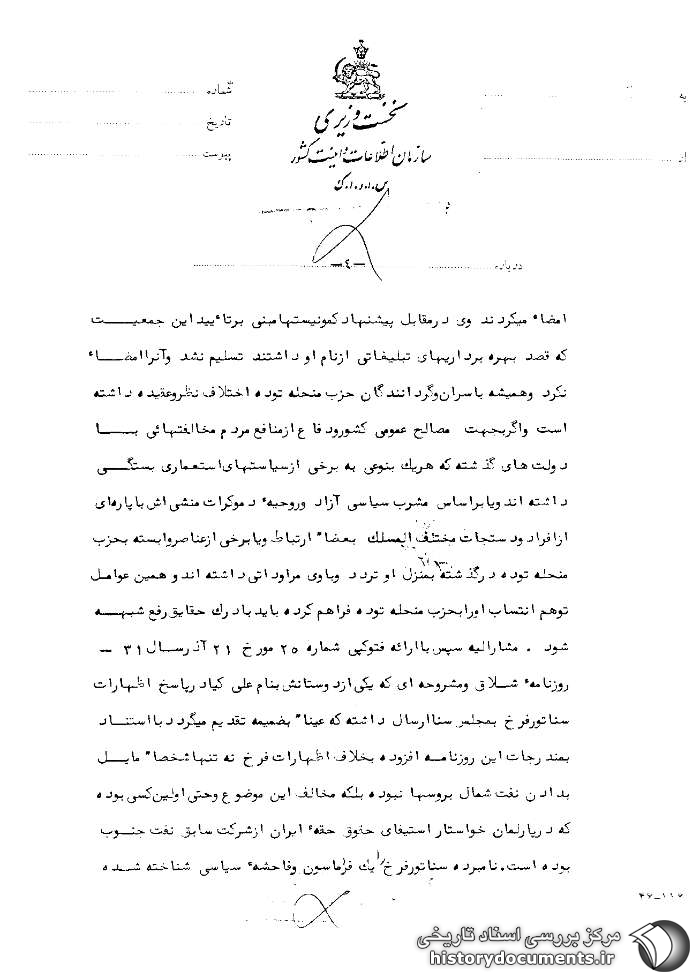 نخست وزیری
سازمان اطلاعات و امنیت کشور
س.ا.و.ا.ک
به
شماره
تاریخ
از
پیوست
درباره
-٤-
امضاء میکردند وی درمقابل پیشنهاد کمونیستها مبنی برتائیید این جمعیت
که قصد بهره برداریهای تبلیغاتی ازنام او داشتند تسلیم نشد وآنرا امضاء
نکرد وهمیشه باسران وگردانندگان حزب منحله توده اختلاف نظروعقیده داشته
است واگربجهت مصالح عمومی کشورودفاع ازمنافع مردم مخالفتهائی با
دولت های گذشته که هریک بنوعی به برخی ازسیاستهای استعماری بستگی
داشته اند ویابراساس مشرب سیاسی آزاد وروحیهٔ دموکرات منشی اش باپاره ای
ازافراد ودستجات مختلف المسلک بعضاً ارتباط ویابرخی ازعناصروابسته بحزب
منحله توده درگذشته بمنزل او تردد وباوی مراوداتی داشته اند وهمین عوامل
توهم انتساب اورابحزب منحله توده فراهم کرده باید بادرک حقایق رفع شبهه
شود . مشارالیه سپس باارائه فتوکپی شماره ۲۵ مورخ ۲۱ آذرسال ۳۱ –
روزنامهٔ شلاق ومشروحه ای که یکی ازدوستانش بنام علی کیا درپاسخ اظهارات
سناتورفرخ بمجلس سنا ارسال داشته که عیناً بضمیمه تقدیم میگردد بااستناد
بمندرجات این روزنامه افزوده بخلاف اظهارات فرخ نه تنها شخصاً مایل
بدادن نفت شمال بروسها نبوده بلکه مخالف این موضوع وحتی اولین کسی بوده
که درپارلمان خواستار استیفای حقوق حقهٔ ایران ازشرکت سابق نفت جنوب
بوده است. نامبرده سناتورفرخ را یک فراماسون وفاحشهٔ سیاسی شناخته شده
۴۶-۱۱۷
مرکز بررسی اسناد تاریخی
historydocuments.ir